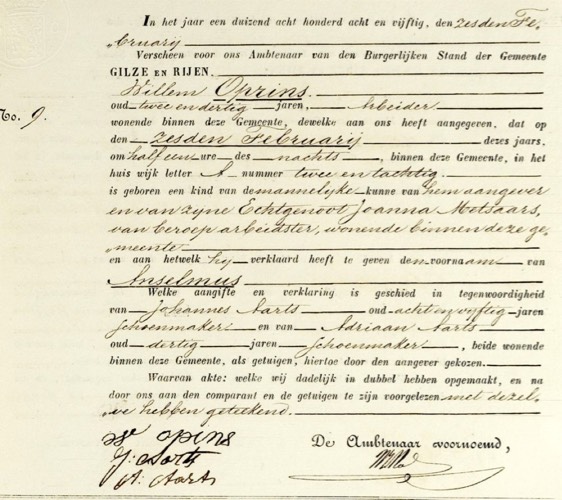 In het jaar een duizend acht honderd acht en vijftig, den zesden Fe-
bruarij
Verscheen voor ons Ambtenaar van den Burgerlijken Stand der Gemeente
GILZE EN RIJEN.
Willem Oprins.
oud twee en dertig jaren, Arbeider
No. 9. wonende binnen deze Gemeente, dewelke aan ons heeft aangegeven, dat op
den zesden Februarij dezes jaars,
om half een ure des nachts, binnen deze Gemeente, in het
huis wijk letter A nummer twee en tachtig
is geboren een kind van de mannelijke kunne van hem aangever
en van zyne Echtgenoot Joanna Motsaars,
van beroep arbeidster, wonende binnen deze ge-
meente
en aan hetwelk hy verklaard heeft te geven den voornaam van
Anselmus
Welke aangifte en verklaring is geschied in tegenwoordigheid
van Johannes Aarts oud acht en vyftig jaren
schoenmaker en van Adriaan Aarts
oud dertig jaren schoenmaker, beide wonende
binnen deze Gemeente, als getuigen, hiertoe door den aangever gekozen.
Waarvan akte: welke wij dadelijk in dubbel hebben opgemaakt, en na
door ons aan den comparant en de getuigen te zijn voorgelezen met dezel-
ve hebben geteekend.
W opins
De Ambtenaar voornoemd,
J: Aarts
A: Aarts